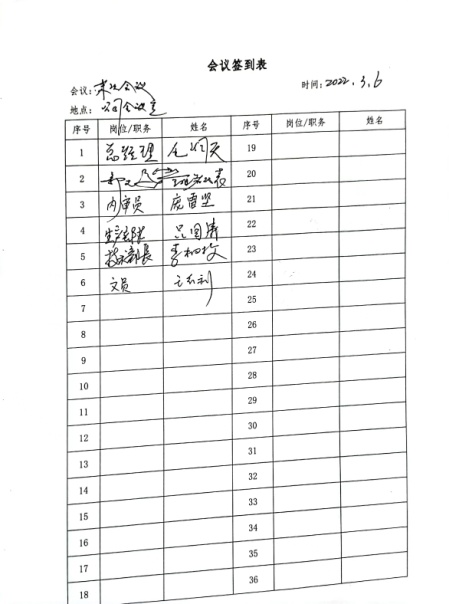 会议签到表
会议：末次会议 时间：2022.3.6
地点：公司会议室
序号 岗位/职务 姓名 序号 岗位/职务 姓名
1 总经理 19
2 20
3 内审员 21
4 22
5 技术部长 23
6 文员 24
7 25
8 26
9 27
10 28
11 29
12 30
13 31
14 32
15 33
16 34
17 35
18 36